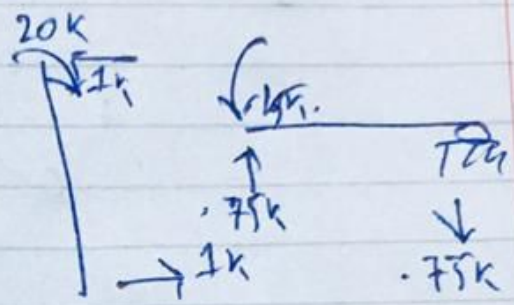 20K
1k
.75k
1k
.75k